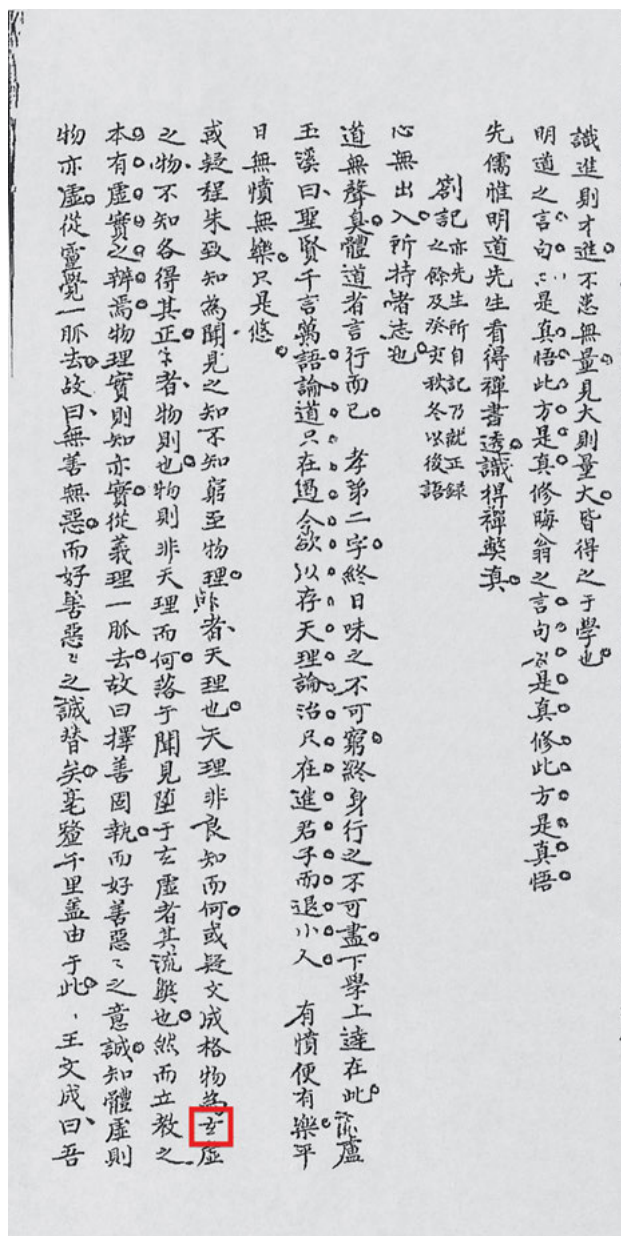 識進則才進不患無量見大則量大皆得之于學也
明道之言句〻是真悟此方是真修晦翁之言句句是真修此方是真悟
先儒惟明道先生看得禪書透識得禪弊真
劄記亦先生所自記乃就正録
之餘及癸亥秋冬以後語
心無出入所持者志也
道無聲臭體道者言行而已 孝弟二字終日味之不可窮終身行之不可盡下學上達在此 羅盧
玉溪曰聖賢千言萬語論道只在遏人欲以存天理論治只在進君子而退小人 有憤便有樂平
日無憤無樂只是悠
或疑程朱致知為聞見之知不知窮至物理理者天理也天理非良知而何或疑文成格物為玄虛
之物不知各得其正正者物則也物則非天理而何落于聞見墮于玄虛者其流弊也然而立教之
本有虛實之辨焉物理實則知亦實從義理一脈去故曰擇善固執而好善惡〻之意誠知體虛則
物亦虛從靈覺一脈去故曰無善無惡而好善惡〻之誠替矣毫釐千里蓋由于此 王文成曰吾